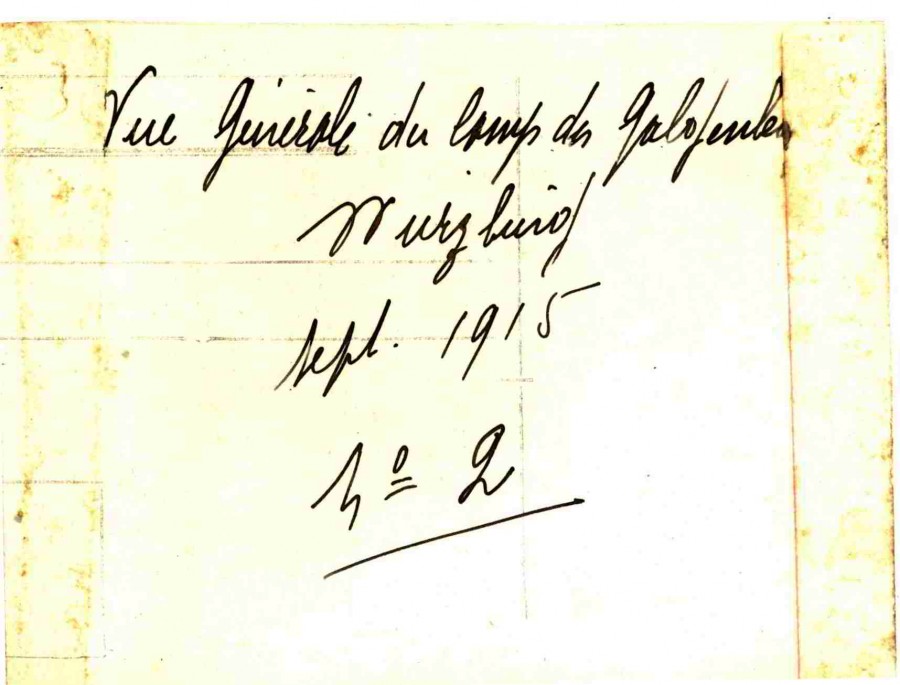 Vue Générale du Camp des
Wurzburg
Sept. 1915
Nº 2